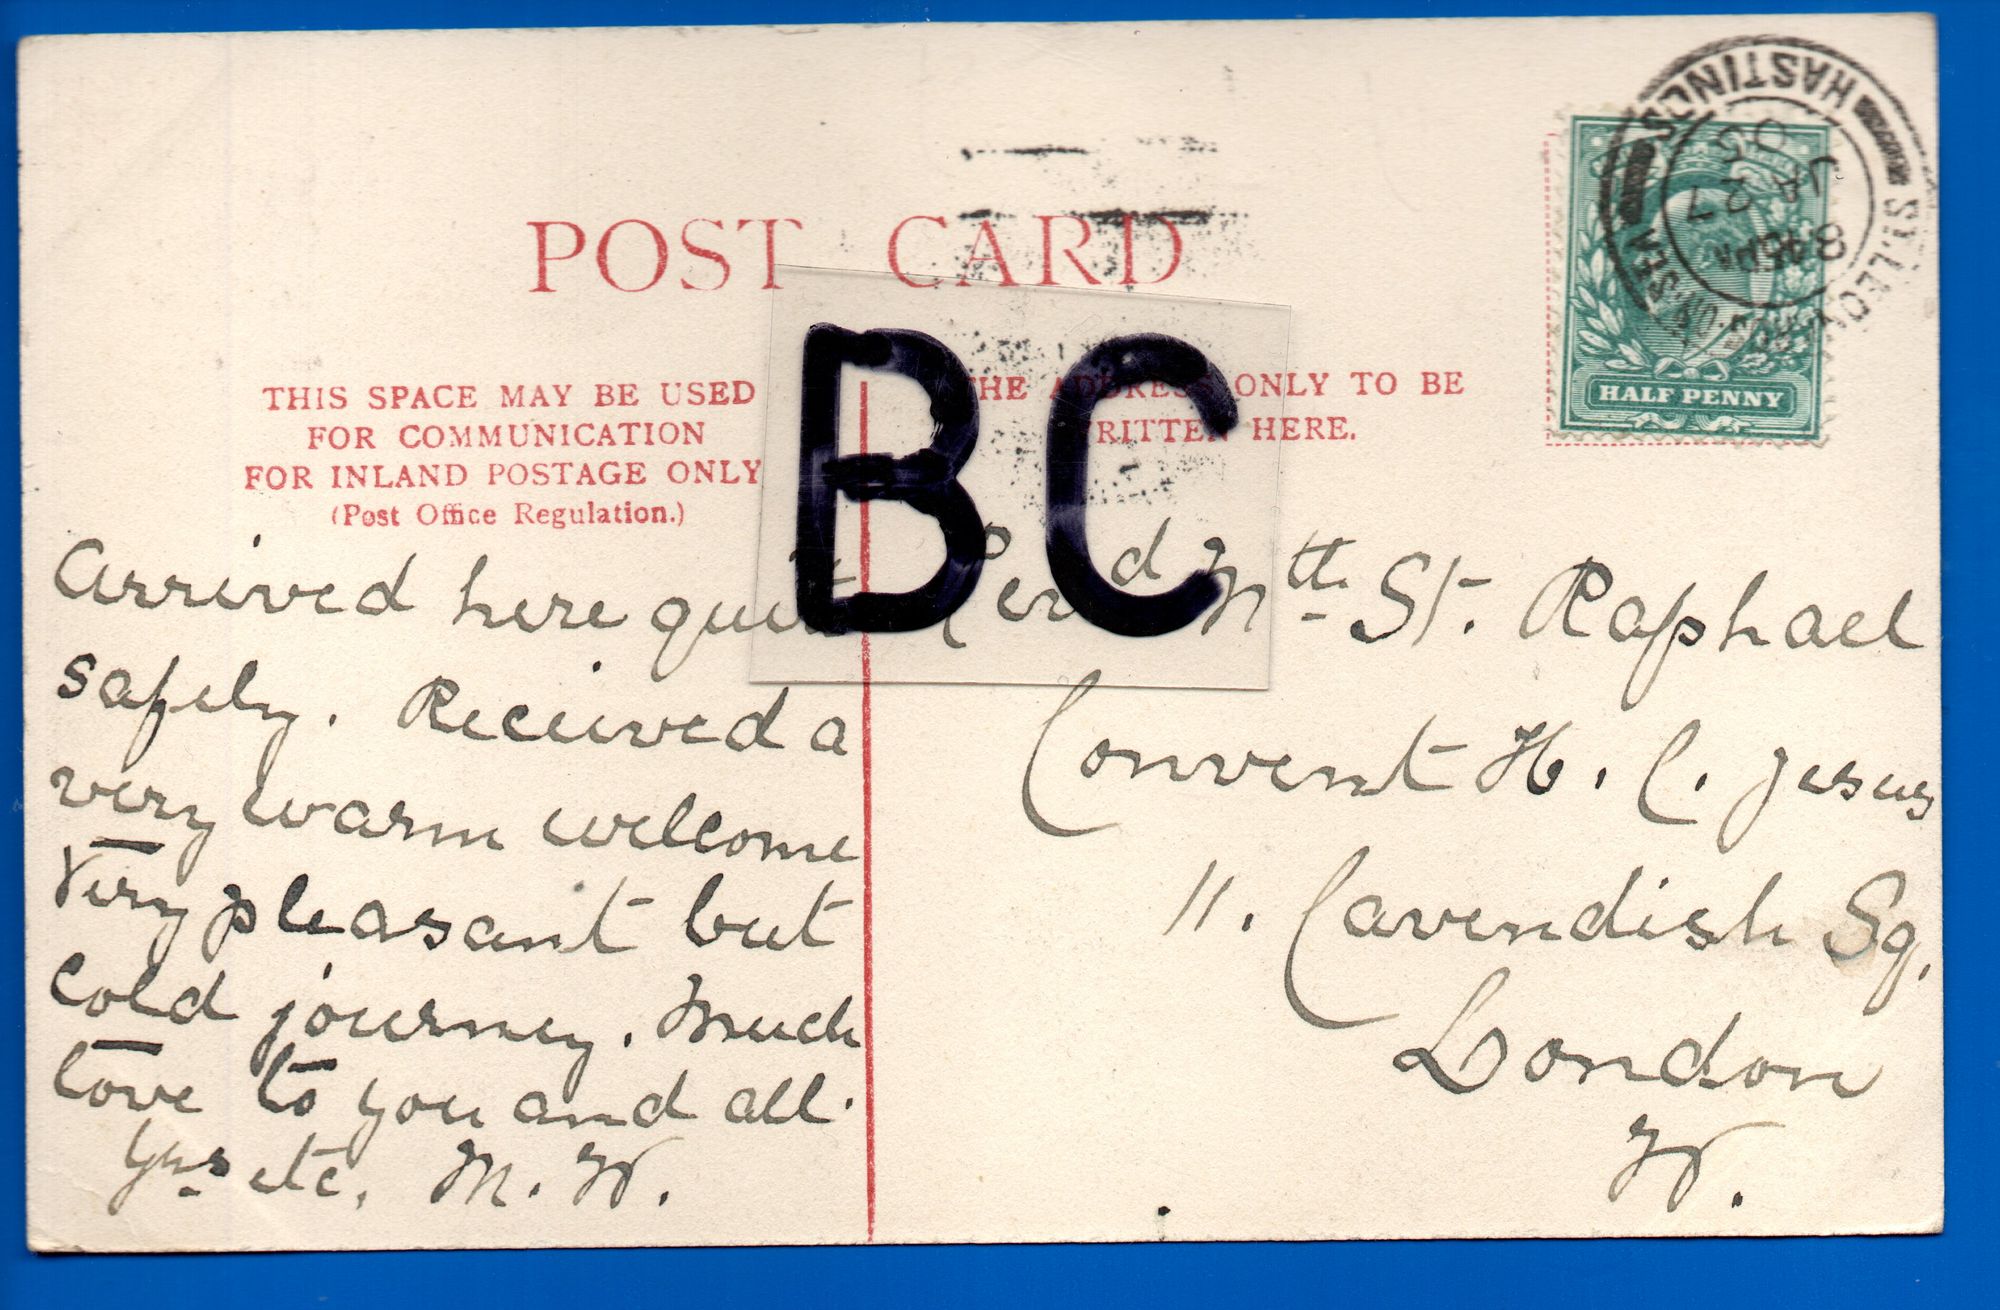 POST CARD
THIS SPACE MAY BE USED
FOR COMMUNICATION
FOR INLAND POSTAGE ONLY
(Post Office Regulation.)
THE ADDRESS ONLY TO BE
WRITTEN HERE.
BC
HALF PENNY
HASTINGS
ST. LEONARDS-ON-SEA
8.45PM
JA 27
05
Arrived here quite
safely. Received a
very warm welcome
Very pleasant but
cold journey. Much
love to you and all.
Yrs etc. M. W.
Revd Mth. St. Raphael
Convent H. C. Jesus
11. Cavendish Sq.
London
W.